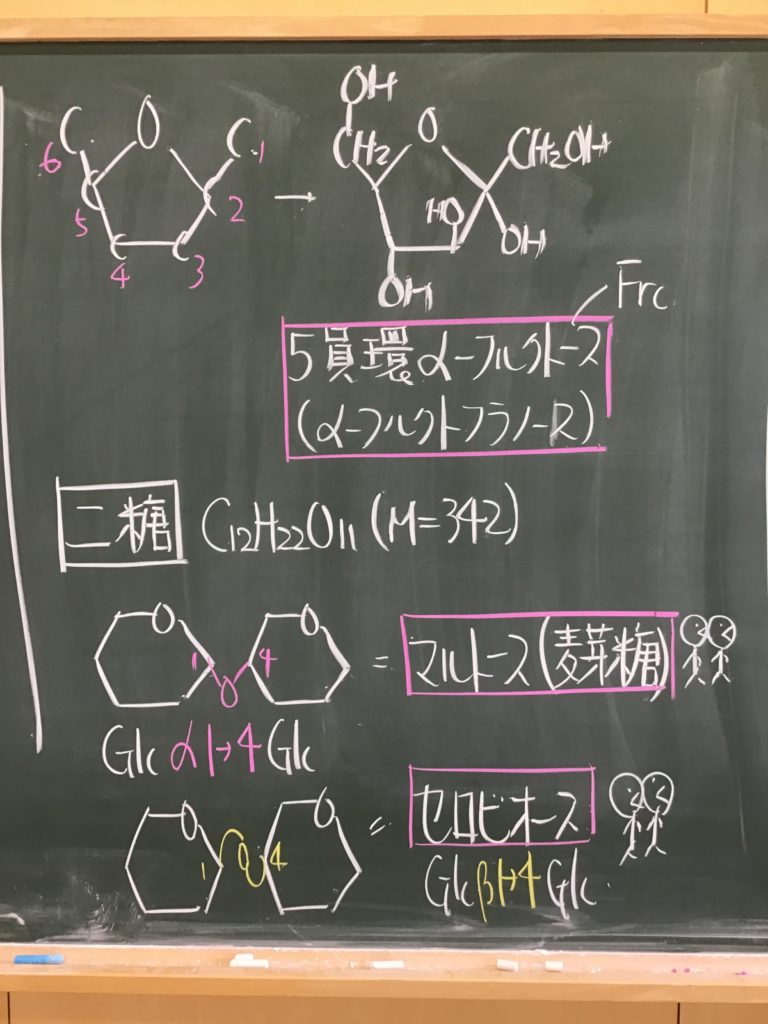 C O C
6 1
5 2
4 3
C C C C
→
OH
CH2 O CH2OH
HO OH
OH
Frc
5員環α-フルクトース
(α-フルクトフラノース)
二糖 C12H22O11 (M=342)
O O
1 O 4 = マルトース(麦芽糖)
Glc α1→4 Glc
O O = セロビオース
1 O 4
Glc β1→4 Glc